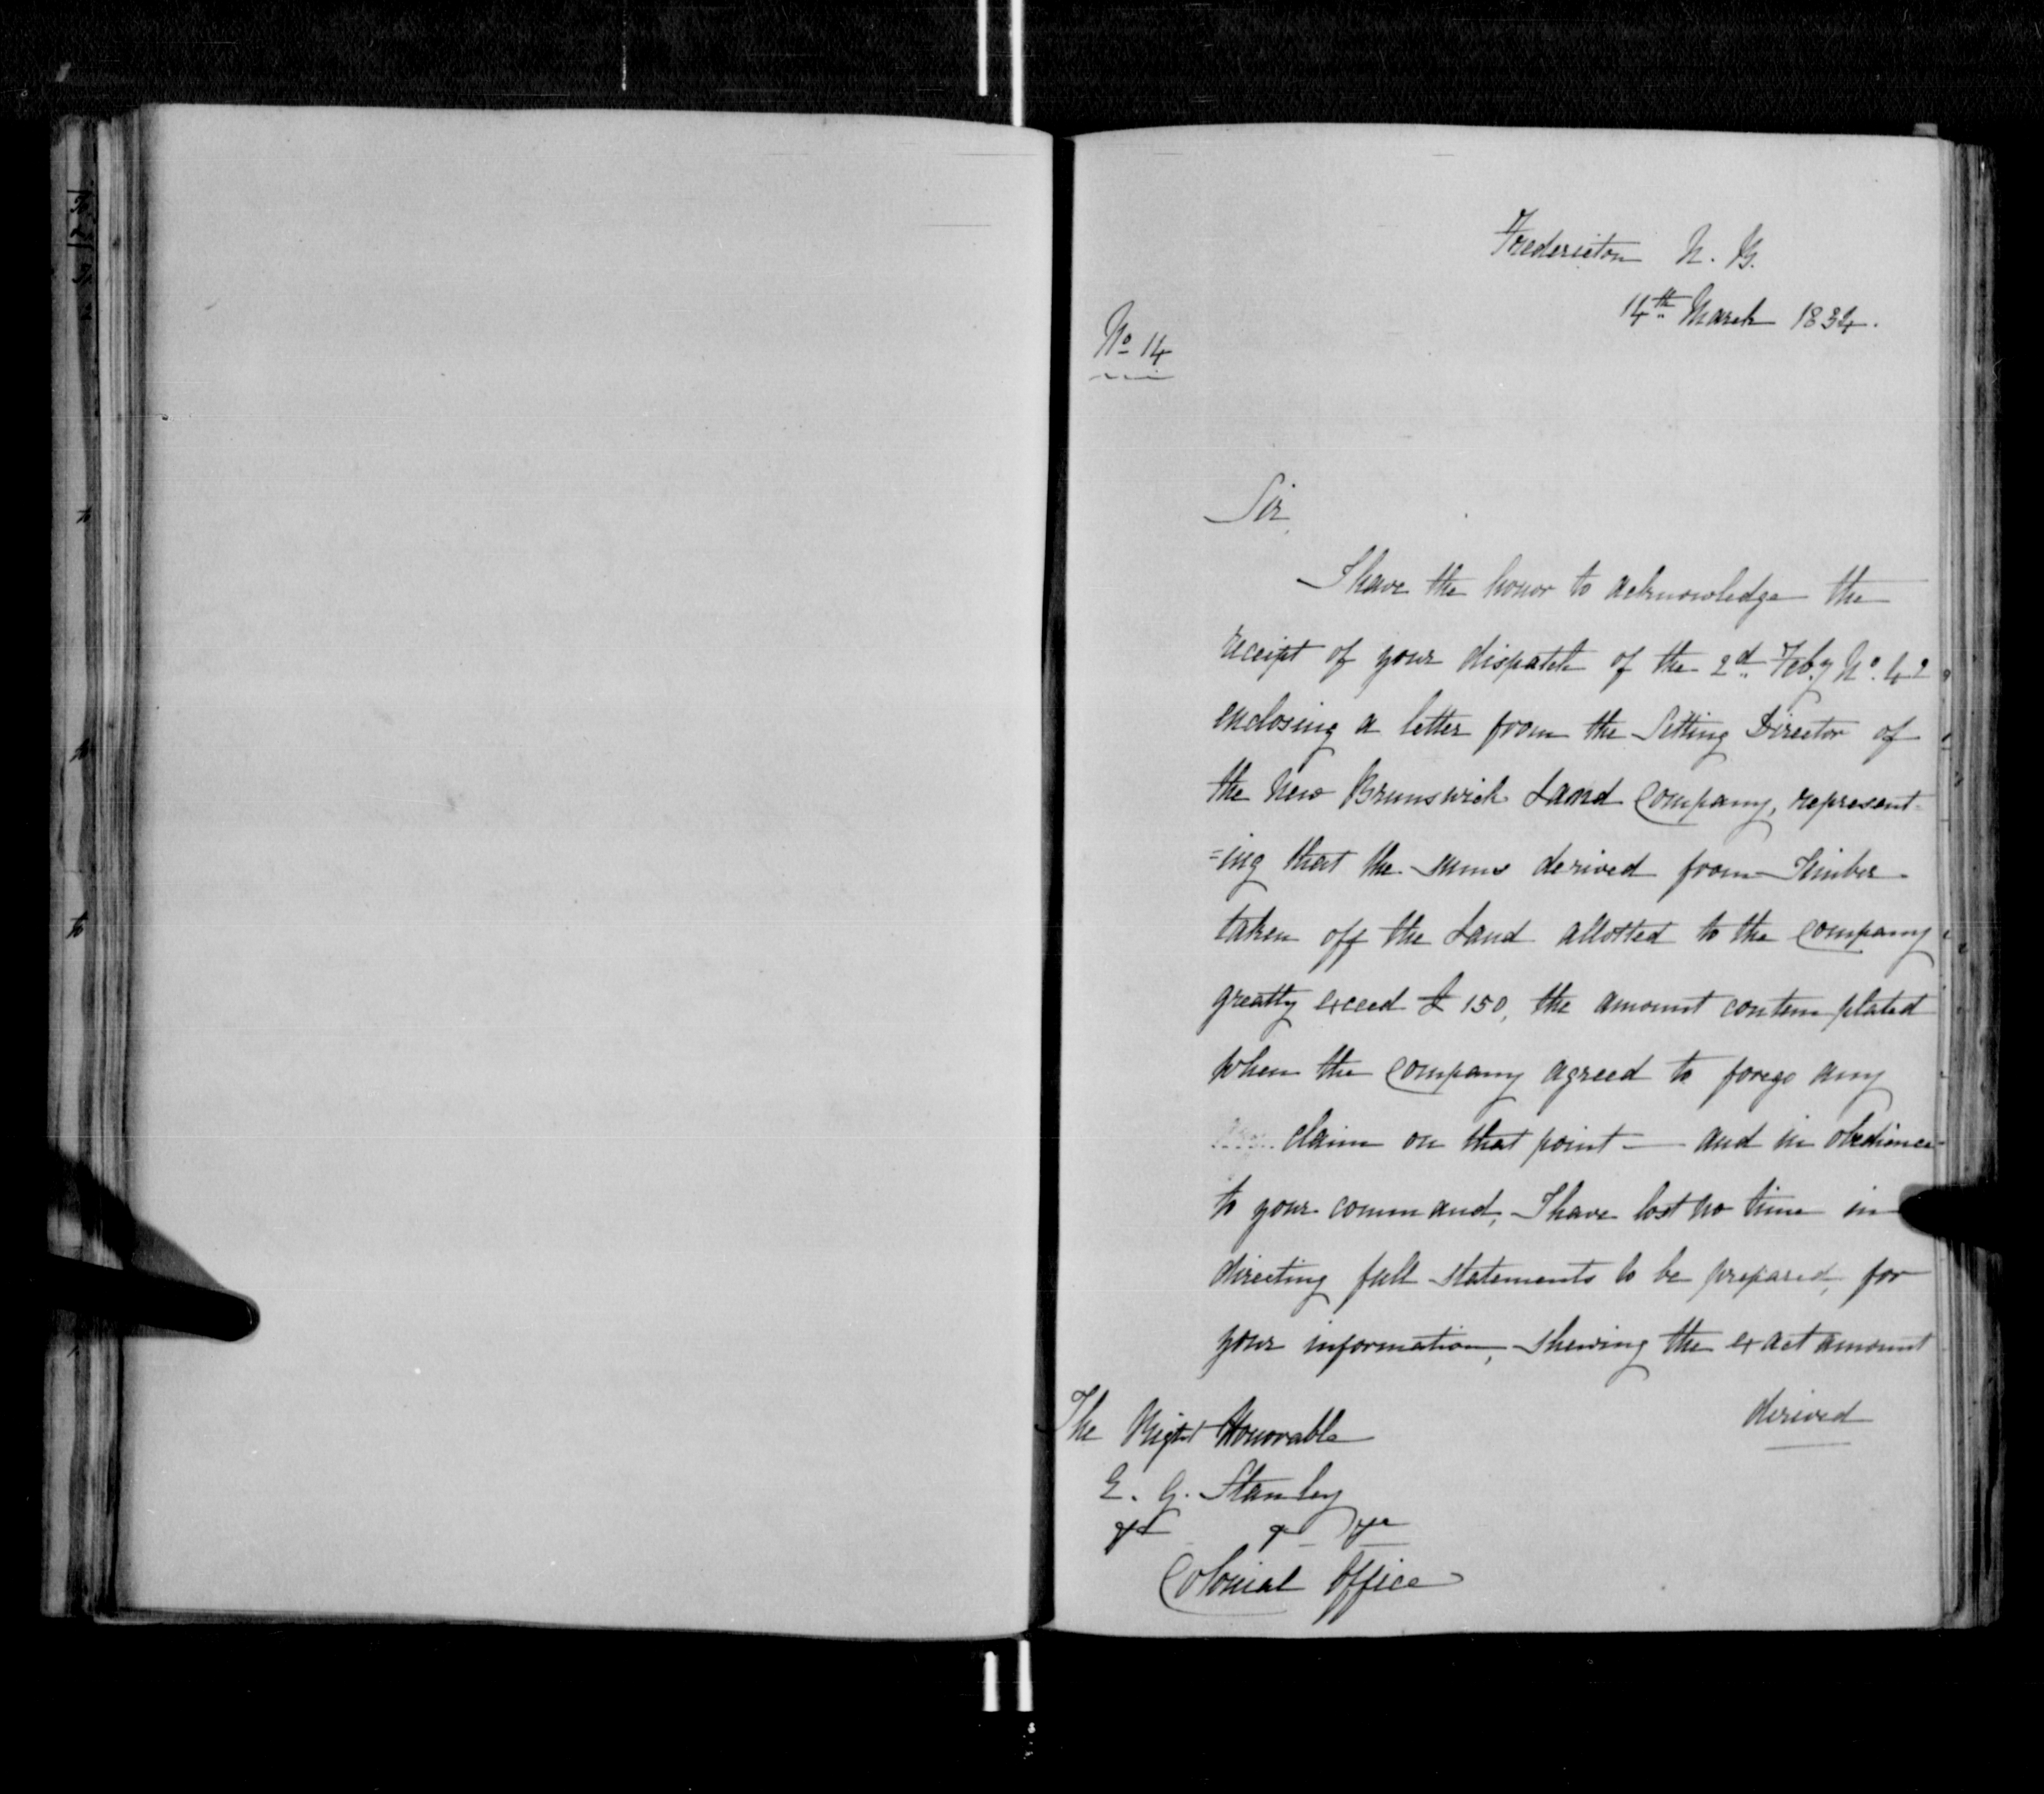 Fredericton N. B.
14th March 1834.
No 14
Sir,
I have the honor to acknowledge the
receipt of your dispatch of the 2d Feby No. 42
enclosing a letter from the Sitting Director of
the New Brunswick Land Company, represent-
=ing that the sums derived from Timber
taken off the Land allotted to the Company
greatly exceed £150, the amount contemplated
when the Company agreed to forego any
claim on that point — and in obedience
to your command, I have lost no time in
directing full statements to be prepared, for
your information, shewing the exact amount
derived
The Right Honorable
E. G. Stanley
Colonial Office